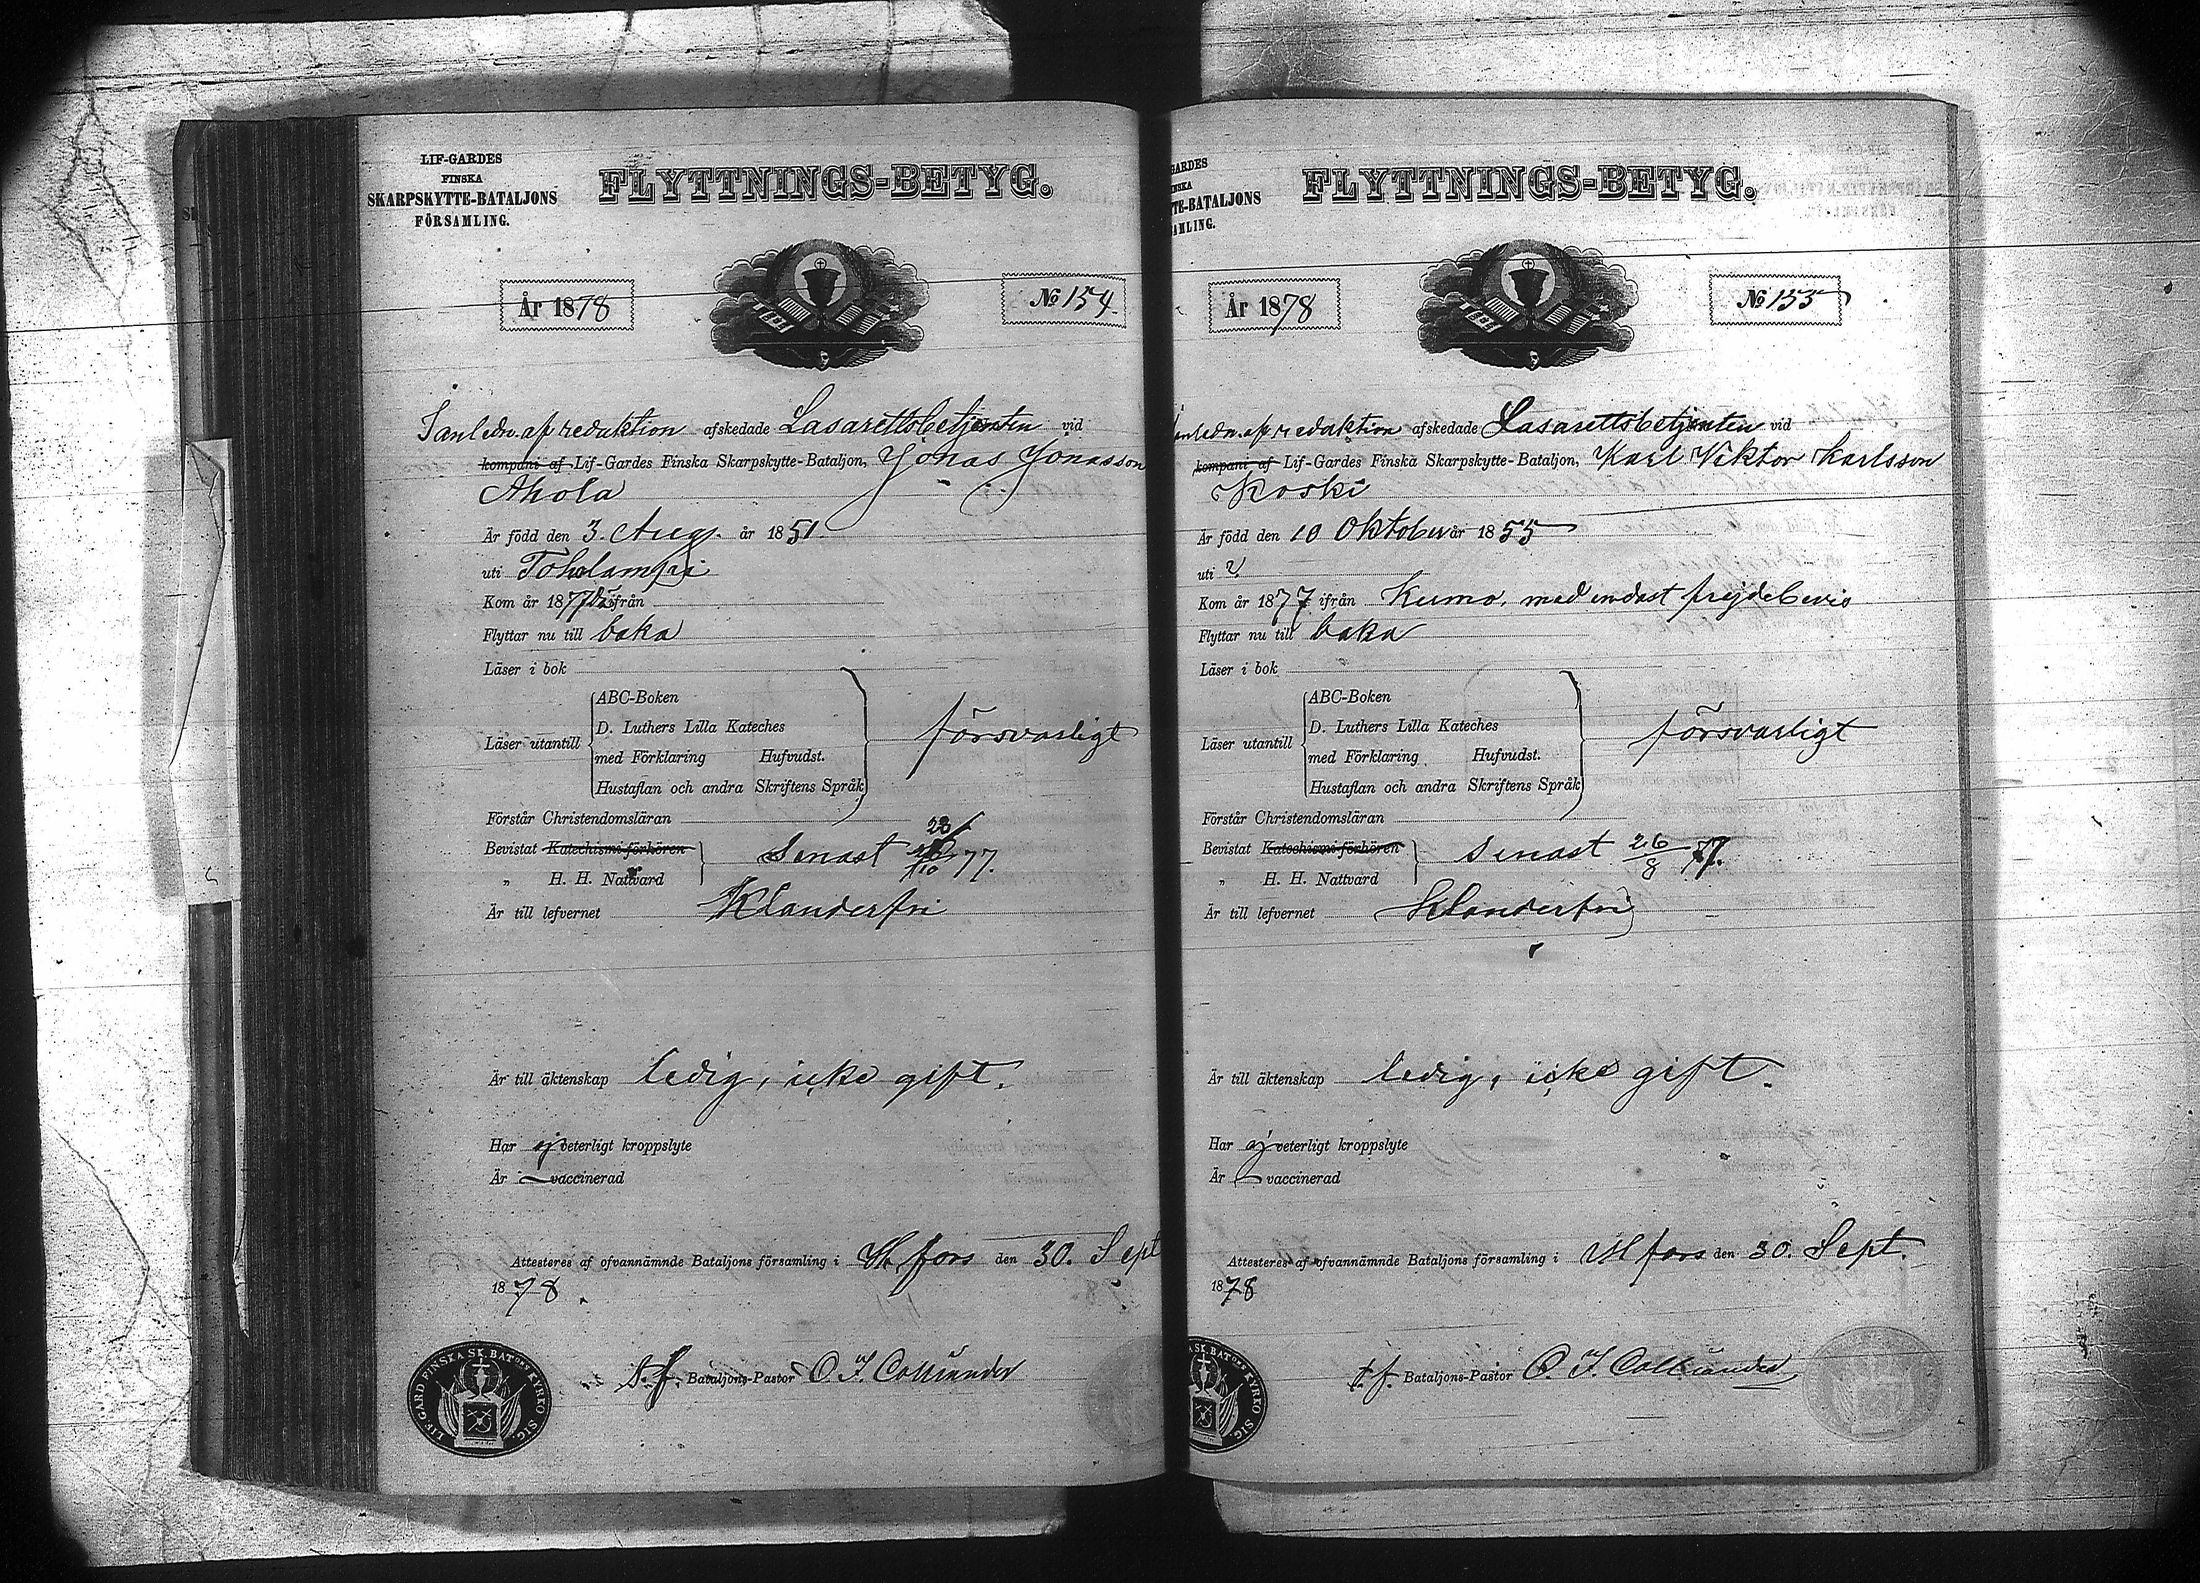 LIF-GARDES
FINSKA
SKARPSKYTTE-BATALJONS
FÖRSAMLING.
FLYTTNINGS-BETYG.
År 1878
№ 154.
I anledn. af reduktion afskedade Lasarettsbetjenten vid
kompani af Lif-Gardes Finska Skarpskytte-Bataljon, Jonas Jonasson
Ahola
Är född den 3. Aug. år 1851.
uti Toholampi
Kom år 187 ifrån
Flyttar nu till baka
Läser i bok
Läser utantill
ABC-Boken
D. Luthers Lilla Kateches
med Förklaring Hufvudst.
Hustaflan och andra Skriftens Språk
försvarligt
Förstår Christendomsläran
Bevistat Katechismi-förhören
„ H. H. Nattvard
senast 77.
Är till lefvernet Klanderfri
Är till äktenskap ledig, icke gift.
Har ej veterligt kroppslyte
Är vaccinerad
Attesteres af ofvannämnde Bataljons församling i H.fors den 30. Sept
1878
t. f. Bataljons-Pastor O. I. Colliander
LIF-GARD FINSKA SK. BATONS KIRKO SIG.
GARDES
NSKA
TE-BATALJONS
AMLING.
FLYTTNINGS-BETYG.
År 1878
№ 155
I anledn. af reduktion afskedade Lasarettsbetjenten vid
kompani af Lif-Gardes Finska Skarpskytte-Bataljon, Karl Viktor Karlsson
Koski
Är född den 10 Oktober år 1855
uti ?
Kom år 1877 ifrån Kumo, med endast frejdebevis
Flyttar nu till baka
Läser i bok
Läser utantill
ABC-Boken
D. Luthers Lilla Kateches
med Förklaring Hufvudst.
Hustaflan och andra Skriftens Språk
försvarligt
Förstår Christendomsläran
Bevistat Katechismi-förhören
„ H. H. Nattvard
senast 26/8 77.
Är till lefvernet Klanderfri
Är till äktenskap ledig, icke gift.
Har ej veterligt kroppslyte
Är vaccinerad
Attesteres af ofvannämnde Bataljons församling i H.fors den 30. Sept.
1878
t. f. Bataljons-Pastor O. I. Colliander
A SK. BATONS KIRKO SIG.